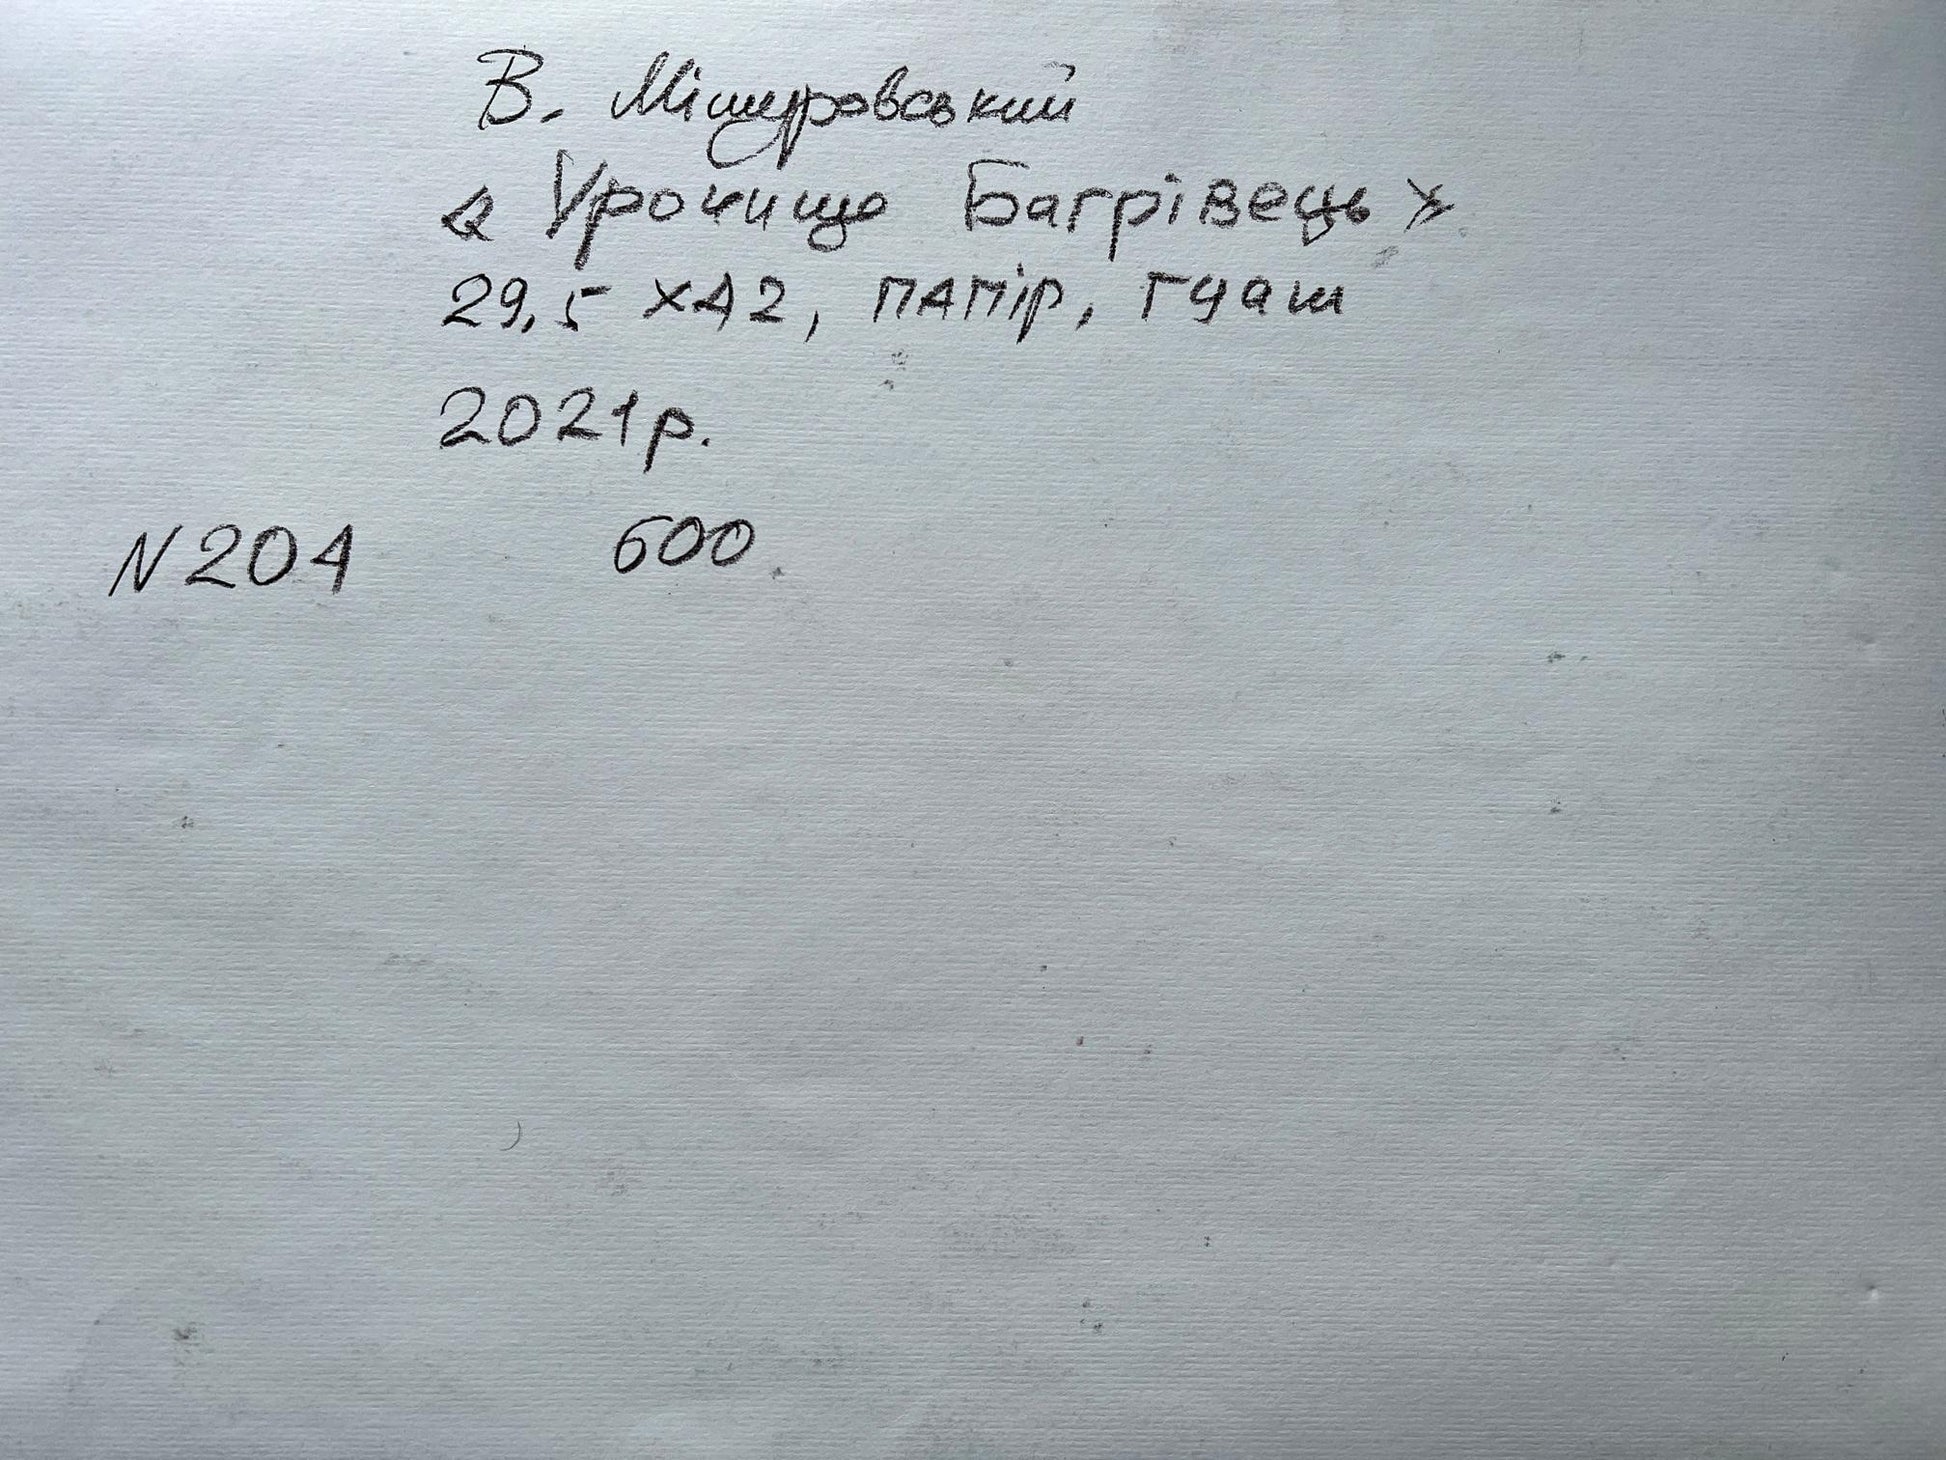 В. Мішуровський
«Урочище Багрівець»
29,5 х42, папір, гуаш
2021р.
N204 600